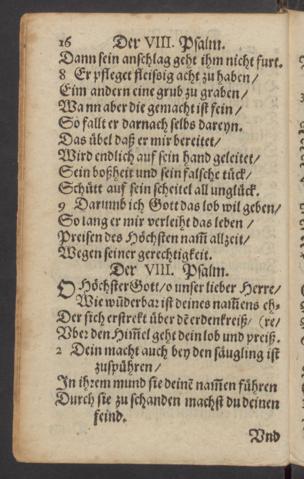 16 Der VIII. Psalm.
Dann sein anschlag geht ihm nicht furt.
8 Er pfleget fleissig acht zu haben /
Eim andern eine grub zu graben /
Wann aber die gemacht ist fein /
So fallt er darnach selbs dareyn.
Das übel daß er mir bereitet /
Wird endlich auf sein hand geleitet /
Sein boßheit und sein falsche tück /
Schütt auf sein scheitel all unglück.
9 Darumb ich Gott das lob wil geben /
So lang er mir verleiht das leben /
Preisen des Höchsten nam̃ allzeit /
Wegen seiner gerechtigkeit.
Der VIII. Psalm.
O Höchster Gott / o unser lieber Herre /
Wie wũderbar ist deines nam̃ens eh-
Der sich erstrekt über dẽ erdenkreiß / (re /
Vber den Him̃el geht dein lob und preiß.
2 Dein macht auch bey den säugling ist
zuspühren /
In ihrem mund sie deinẽ nam̃en führen
Durch sie zu schanden machst du deinen
feind.
Vnd